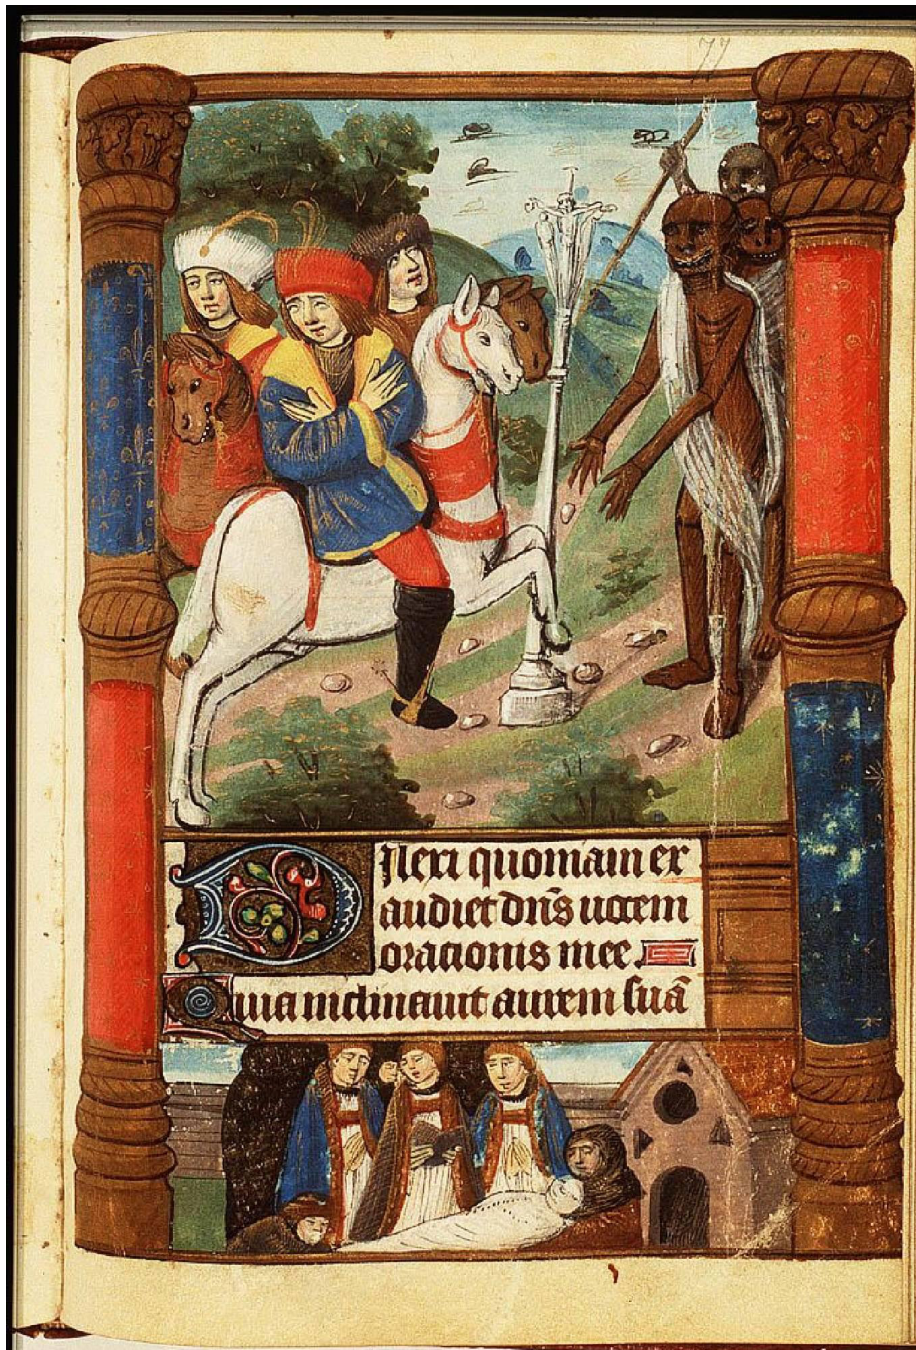 77
Dilexi quoniam ex
audiet dn̄s uocem
orationis mee
Quia inclinauit aurem suā